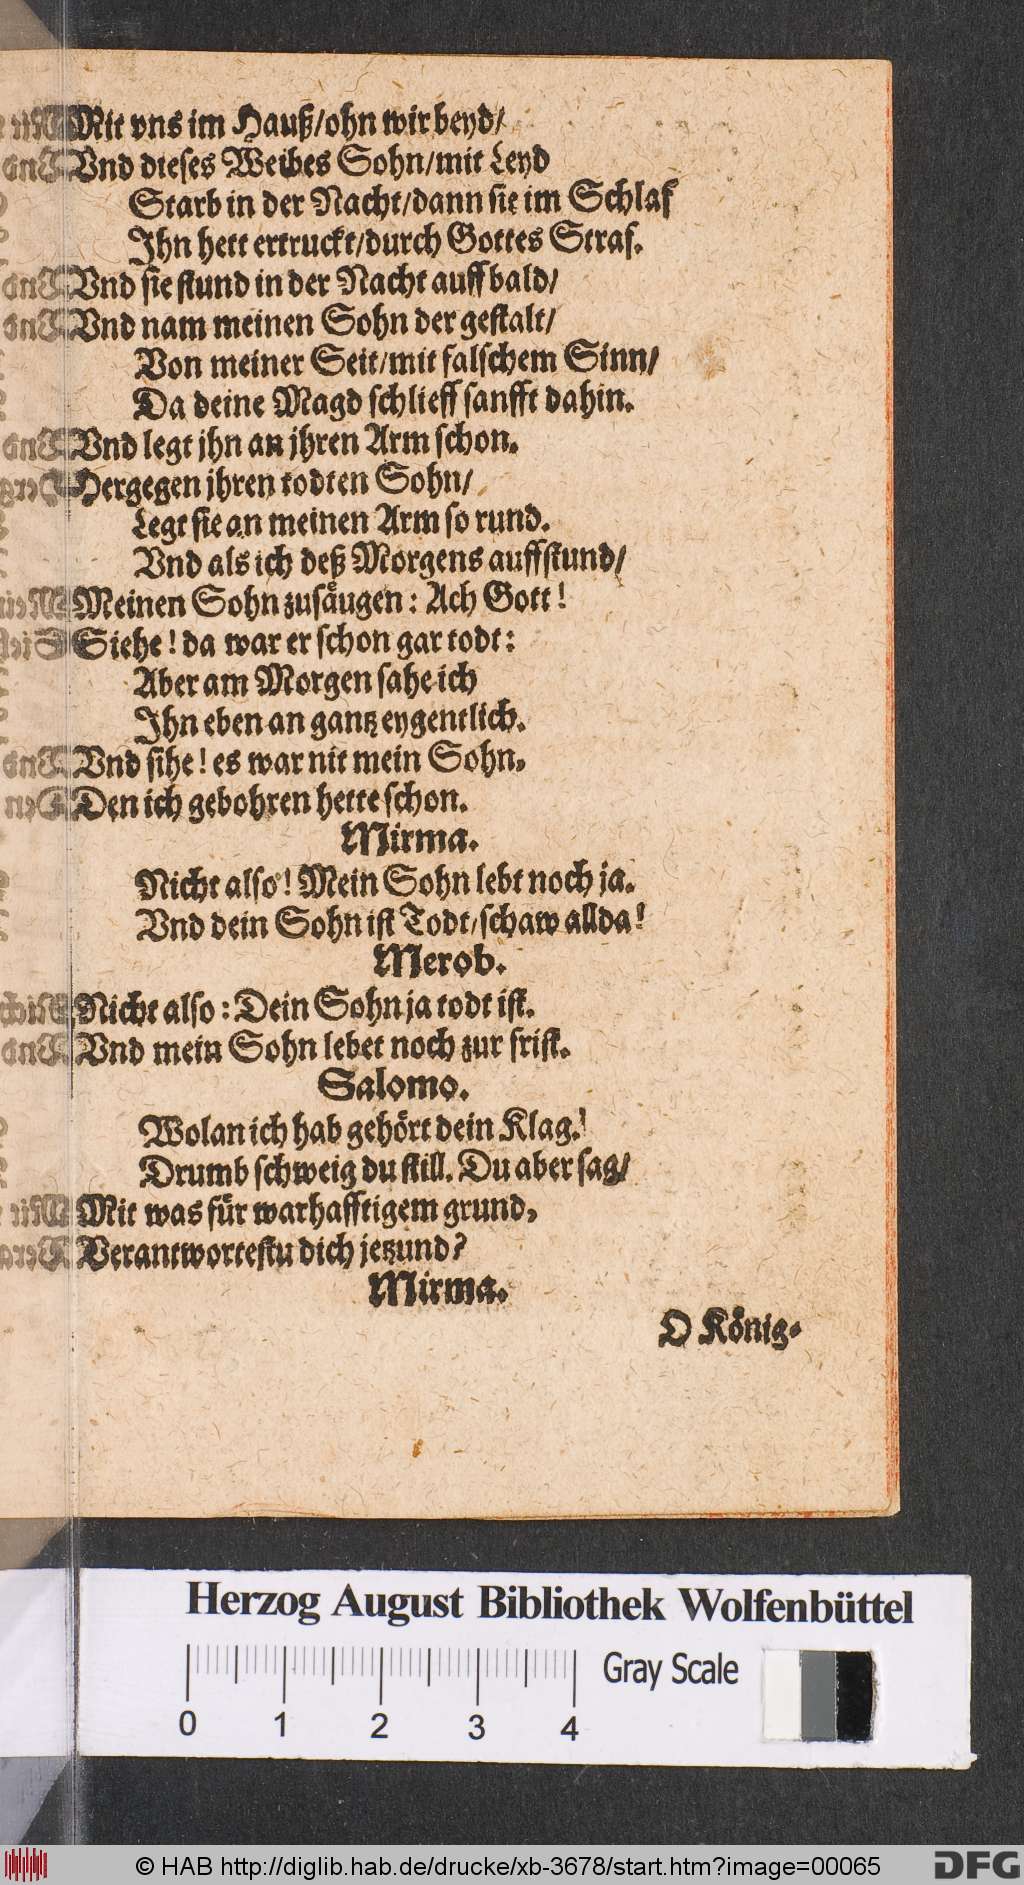 Mit vns im Hauß/ohn wir beyd/
Vnd dieses Weibes Sohn/mit Leyd
Starb in der Nacht/dann sie im Schlaf
Ihn hett ertruckt/durch Gottes Straf.
Vnd sie stund in der Nacht auff bald/
Vnd nam meinen Sohn der gestalt/
Von meiner Seit/mit falschem Sinn/
Da deine Magd schlieff sanfft dahin.
Vnd legt jhn an jhren Arm schon.
Hergegen jhren todten Sohn/
Legt sie an meinen Arm so rund.
Vnd als ich deß Morgens auffstund/
Meinen Sohn zusäugen: Ach Gott!
Siehe! da war er schon gar todt:
Aber am Morgen sahe ich
Ihn eben an gantz eygentlich.
Vnd sihe! es war nit mein Sohn,
Den ich gebohren hette schon.
Mirma.
Nicht also! Mein Sohn lebt noch ja.
Vnd dein Sohn ist Todt/schaw allda!
Merob.
Nicht also: Dein Sohn ja todt ist.
Vnd mein Sohn lebet noch zur frist.
Salomo.
Wolan ich hab gehört dein Klag!
Drumb schweig du still. Du aber sag/
Mit was für warhafftigem grund,
Verantwortestu dich jetzund?
Mirma.
O König-
Herzog August Bibliothek Wolfenbüttel
Gray Scale
0 1 2 3 4
© HAB http://diglib.hab.de/drucke/xb-3678/start.htm?image=00065
DFG